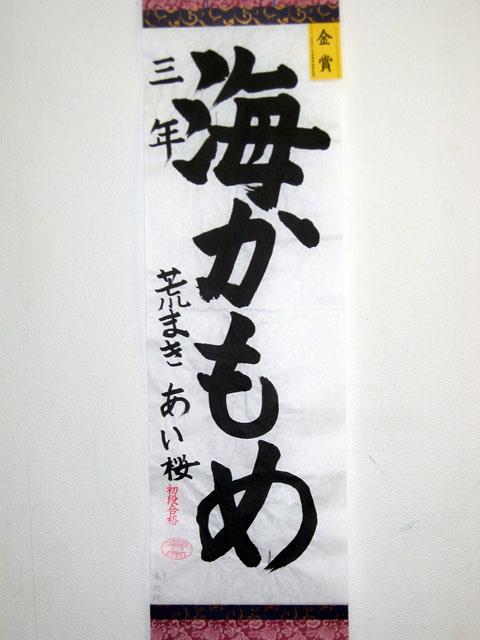 金賞
海かもめ
三年
荒まき あい桜
初段合格